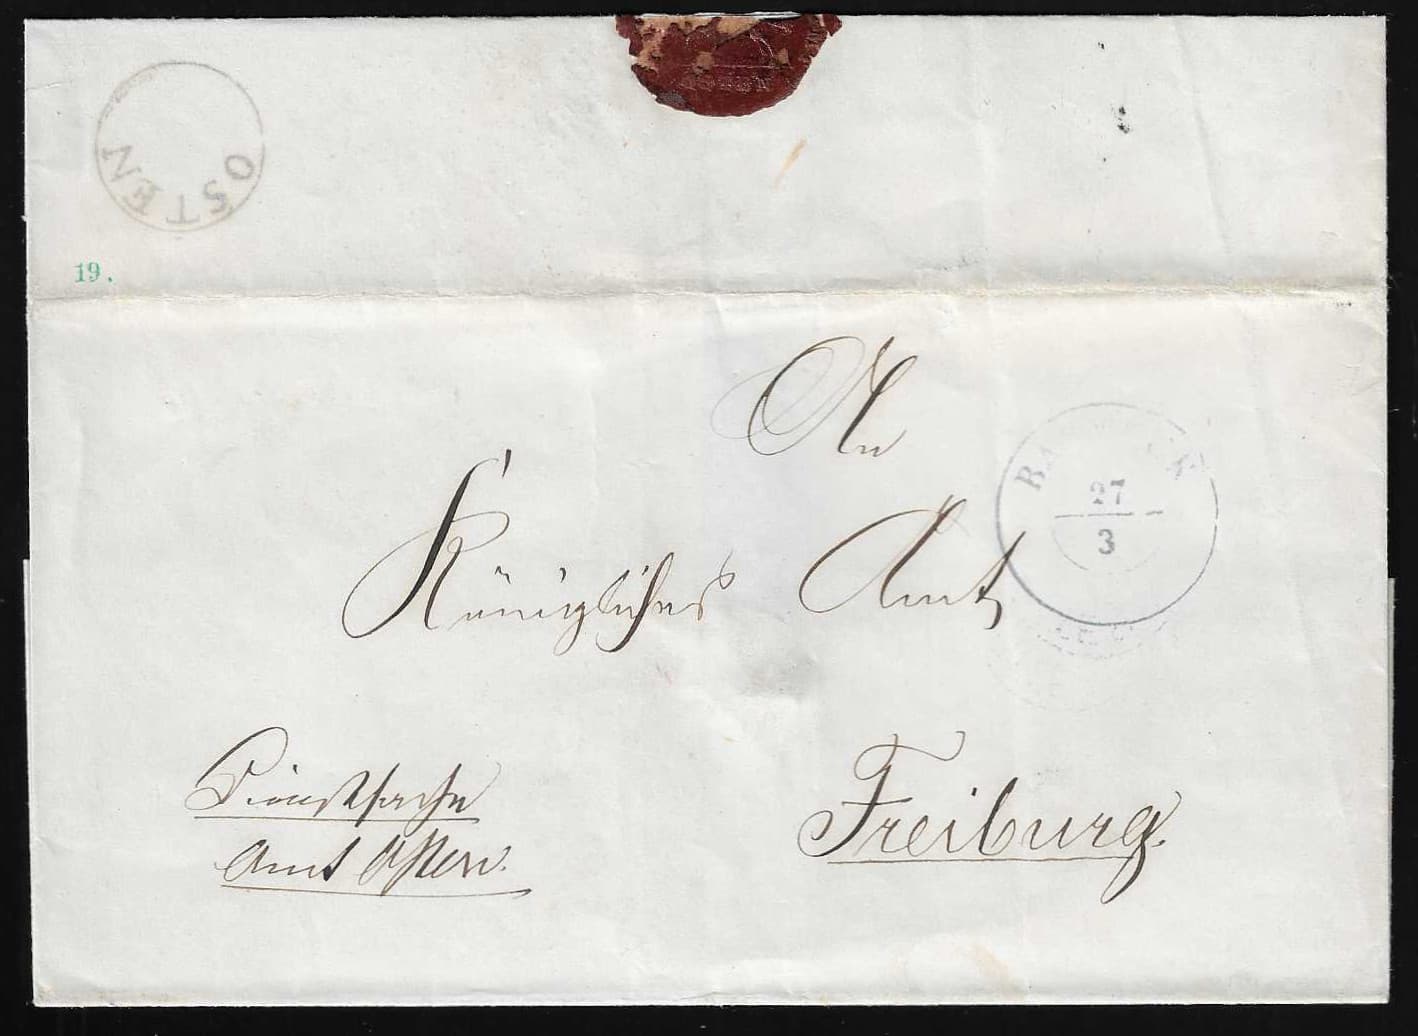 OSTEN
19.
An
Königliches Amt
27
3
Dienstsache
Amt Osten.
Freiburg.